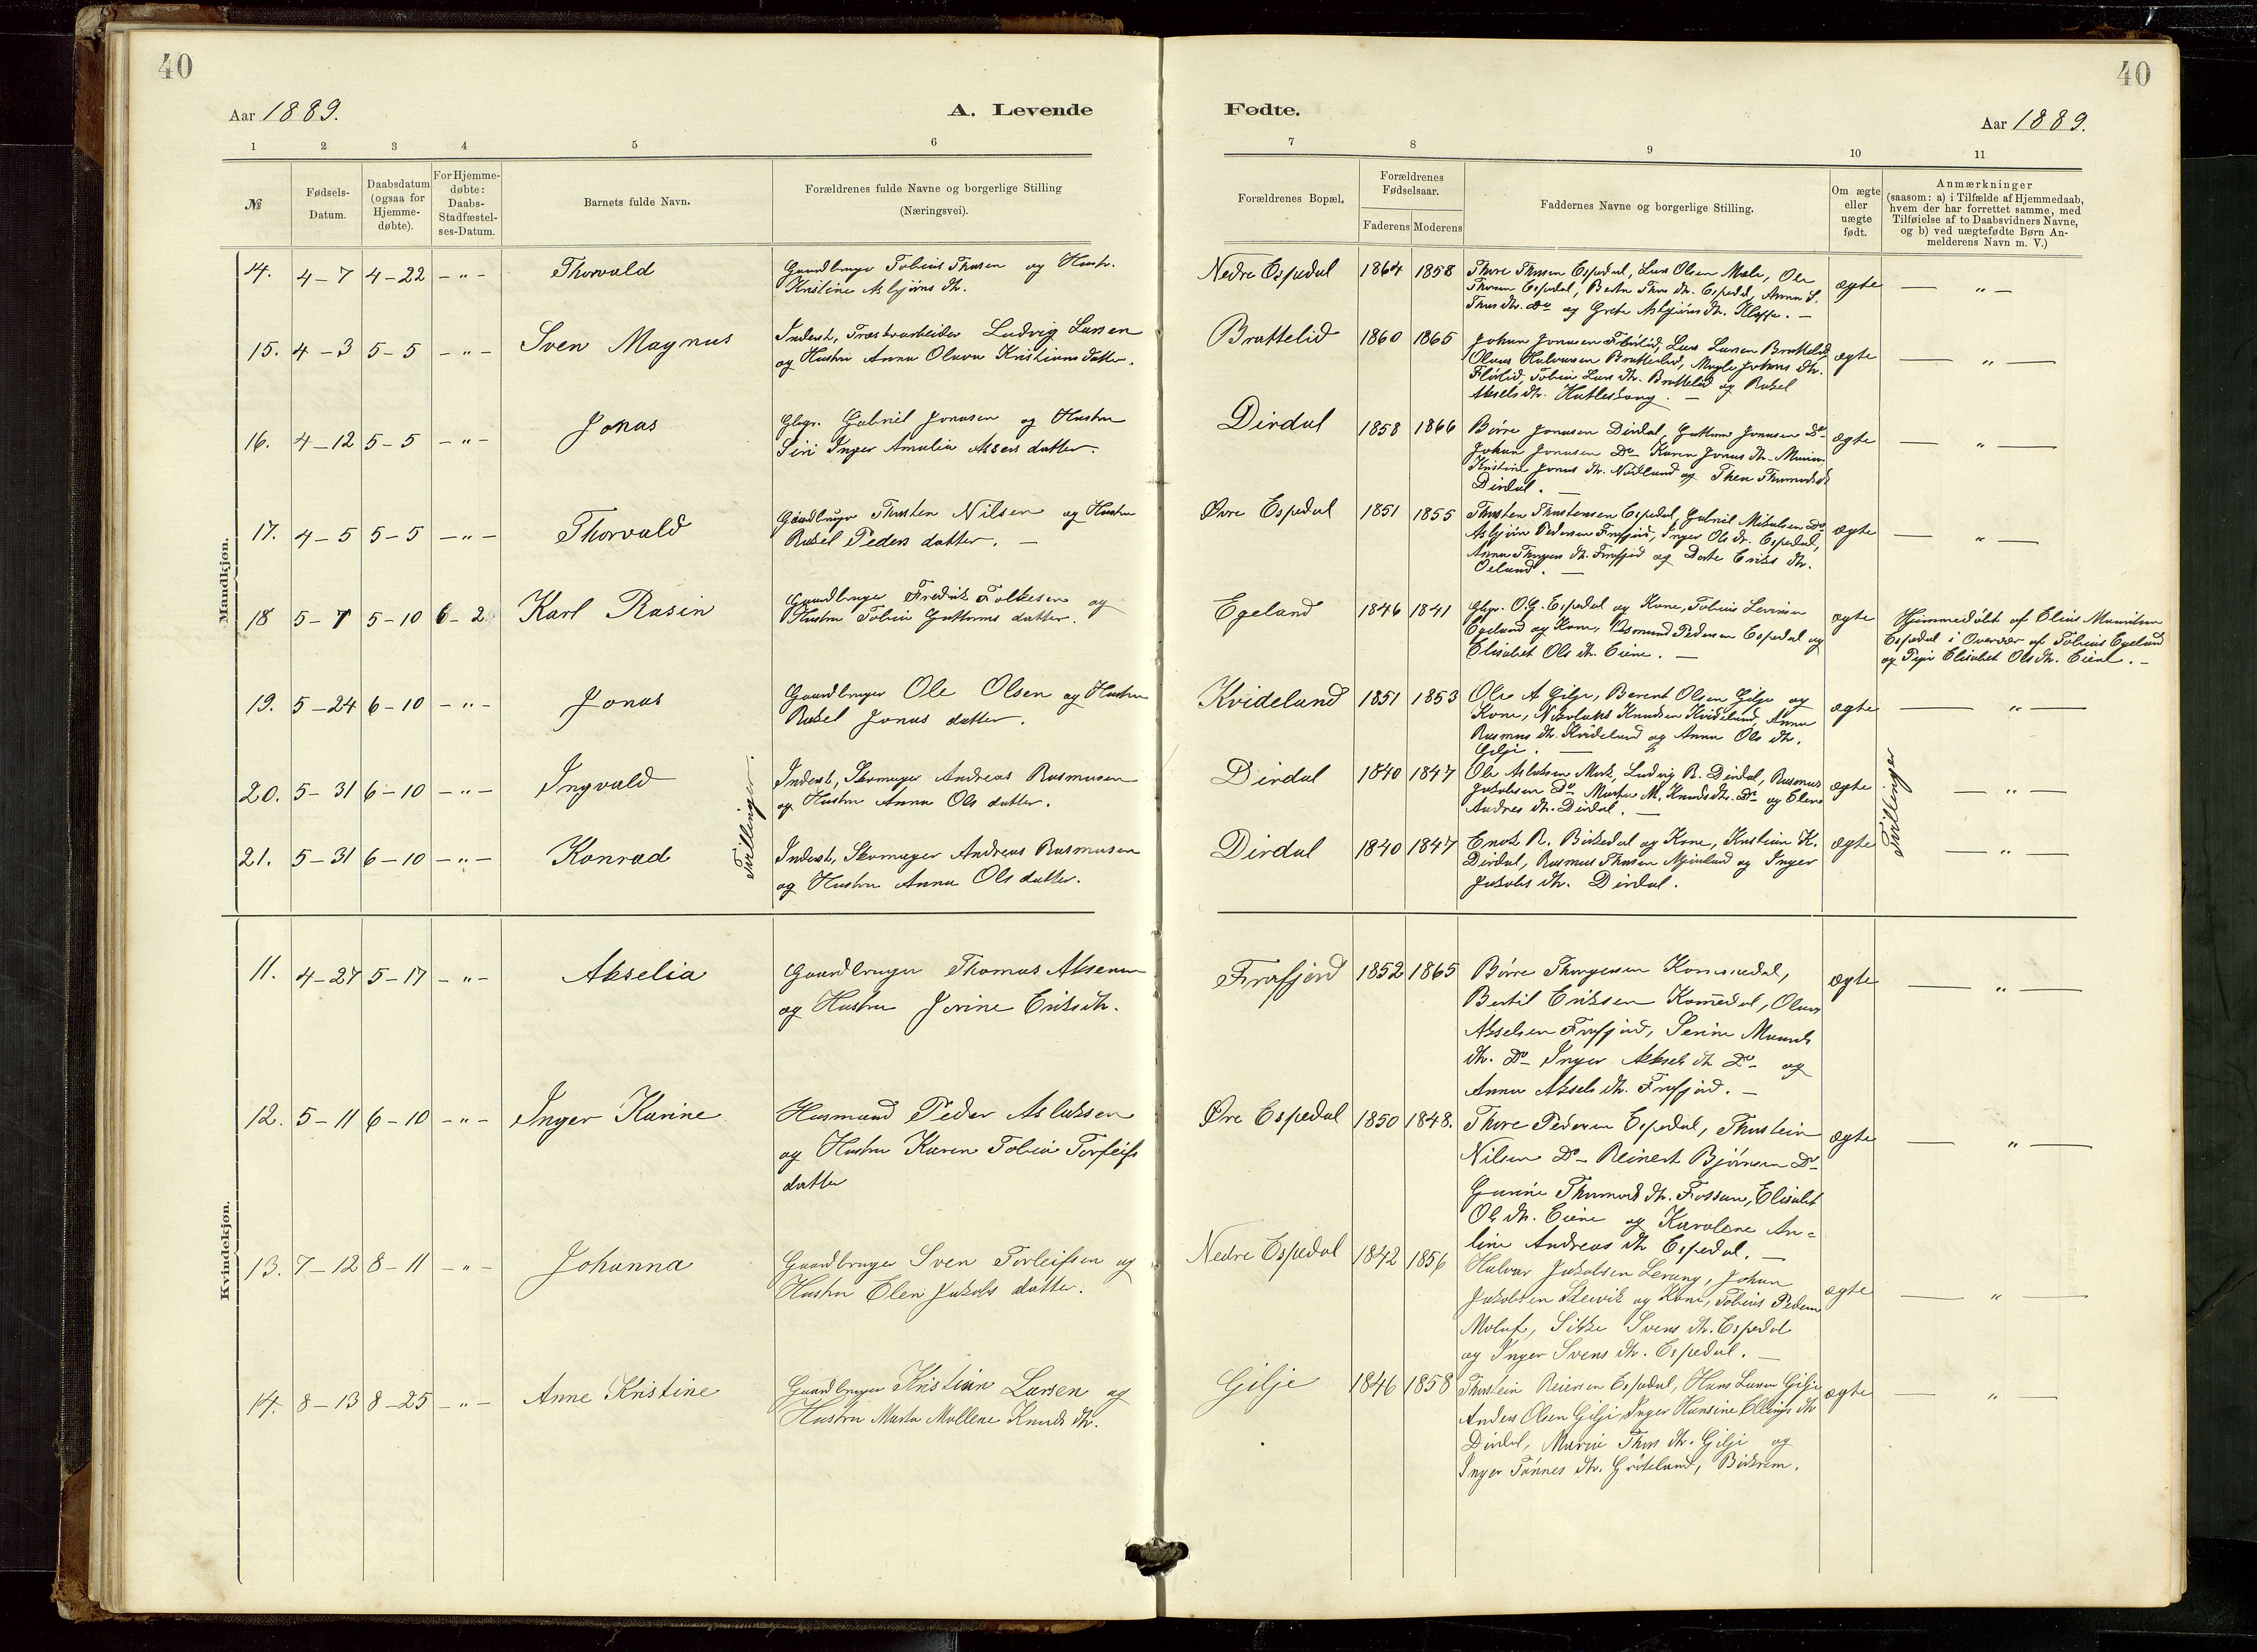 40
40
Aar 1889.
A. Levende
Fødte.
Aar 1889.
1 2 3 4 5 6
7 8 9 10 11
№
Fødsels-
Datum.
Daabsdatum
(ogsaa for
Hjemme-
døbte).
For Hjemme-
døbte:
Daabs-
Stadfæstel-
ses-Datum.
Barnets fulde Navn.
Forældrenes fulde Navne og borgerlige Stilling
(Næringsvei).
Forældrenes Bopæl.
Forældrenes
Fødselsaar.
Faderens Moderens
Faddernes Navne og borgerlige Stilling.
Om ægte
eller
uægte
født.
Anmærkninger
(saasom: a) i Tilfælde af Hjemmedaab,
hvem der har forrettet samme, med
Tilføielse af to Daabsvidners Navne,
og b) ved uægtefødte Børn An-
melderens Navn m. V.)
Mandkjøn.
14. 4-7 4-22 -"- Thorvald
Gaardbruger Tobias Thorsen og Hustr.
Kristine Asbjørns dtr.
Nedre Espedal 1864 1858
Thore Thorsen Espedal, Lars Olsen Mæle, Ole
Thorsen Espedal, Berta Thors dtr. Espedal, Anna S.
Thors dtr. Do og Grete Asbjørns dtr. Kleppe. -
ægte — " —
15. 4-3 5-5 -"- Sven Magnus
Inderst, Træskoarbeider Ludvig Larsen
og Hustru Anna Olava Kristians datter.
Brattelid 1860 1865
Johan Jonasen Flørlid, Lars Larsen Brattelid
Olaus Halvorsen Brattelid, Magle Johans dtr.
Flørlid, Tobia Lars dtr. Brattelid og Rakel
Aksels dtr. -
ægte — " —
16. 4-12 5-5 -"- Jonas
Gbgr. Gabriel Jonasen og Hustru
Siri Inger Amalia Assers datter.
Dirdal 1858 1866
Børre Jonasen Dirdal, Guttorm Jonasen Do-
Johan Jonasen Do- Karen Jonas dtr.
Kristine Jonas dtr. Nødland og Thea
Dirdal. -
ægte — " —
17. 4-5 5-5 -"- Thorvald
Gaardbruger Thorsten Nilsen og Hustru
Rakel Peders datter. -
Øvre Espedal 1851 1855
Thorsten Thorstensen Espedal, Gabriel Mikalsen Do
Asbjørn Pedersen Frafjord, Inger Ols dtr. Espedal,
Anna dtr. Frafjord og Dorte Eriks dtr.
Oeland. -
ægte — " —
18 5-7 5-10 6-2 Karl Rasin
Gaardbruger Fredrik Folkesen og
Hustru Tobia Guttorms datter.
Egeland 1846 1841
Gbgr. O.G. Espedal og Kone, Tobias
Egeland og Kone, Osmund Pedersen Espedal og
Elisabet Ols dtr. Eiene. -
ægte
Hjemmedøbt af Elias Mauritsen
Espedal i Overvær af Tobias Egeland
og Pige Elisabet Ols dtr. Eiene. -
19. 5-24 6-10 -"- Jonas
Gaardbruger Ole Olsen og Hustru
Rakel Jonas datter.
Kvideland 1851 1853
Ole A Gilje, Berent Olsen Gilje og
Kone, Knudsen Kvideland, Anna
Rasmus dtr. Kvideland og Anna Ols dtr.
Gilje. -
ægte — " —
20. 5-31 6-10 -"- Ingvald
Tvillinger.
Inderst, Skomager Andreas Rasmusen
og Hustru Anna Ols datter.
Dirdal 1840 1847
Ole Aslaksen Mork, Ludvig R. Dirdal, Rasmus
Jakobsen Do Marta M. Knuds dtr. Do- og Elen
Andres dtr. Dirdal. -
ægte Tvillinger — " —
21. 5-31 6-10 -"- Konrad
Inderst, Skomager Andreas Rasmusen
og Hustru Anna Ols datter.
Dirdal 1840 1847
Enok R. Birkedal og Kone, Kristian K.
Dirdal, Rasmus Thorsen og Inger
Jakobs dtr. Dirdal.
ægte — " —
Kvindekjøn.
11. 4-27 5-17 -"- Akselia
Gaardbruger Thomas Aksensen
og Hustru Jorine Eriks dtr.
Frafjord 1852 1865
Børre Thorgersen Kommedal,
Bertil Eriksen Kom̅edal, Olaus
Akselsen Frafjord, Serine
dtr. Do- Inger Aksels dtr Do- og
Anna Aksels dtr. Frafjord. -
ægte — " —
12. 5-11 6-10 -"- Inger Karine
Husmand Peder Aslaksen
og Hustru Karen Tobia Torfeifs
datter
Øre Espedal 1850 1848.
Thore Pedersen Espedal, Thorstein
Nilsen Do- Reinert Bjørnsen Do-
dtr. Fossan, Elisabet
Ols dtr. Eiene og Karolene An=
line Andreas dtr Espedal. -
ægte — " —
13. 7-12 8-11 -"- Johanna
Gaardbruger Sven Torleifsen og
Hustru Elen Jakobs datter.
Nedre Espedal 1842 1856
Halvor Jakobsen Lerang, Johan
Jakobsen og Kone, Tobias Pedersen
Molaf, Sikke Svens dtr. Espedal
og Inger Svens dtr. Espedal. -
ægte — " —
14. 8-13 8-25 -"- Anne Kristine
Gaardbruger Kristian Larsen og
Hustru Marta Mallene Knuds dtr.
Gilje 1846 1858
Thorstein Reiersen Espedal, Hans Larsen Gilje
Anders Olsen Gilje, Inger Hansine Ellings dtr
Dirdal, Maria Thors dtr. Gilje og
Inger Tønnes dtr. Grøteland, Birkrem.
ægte — " —